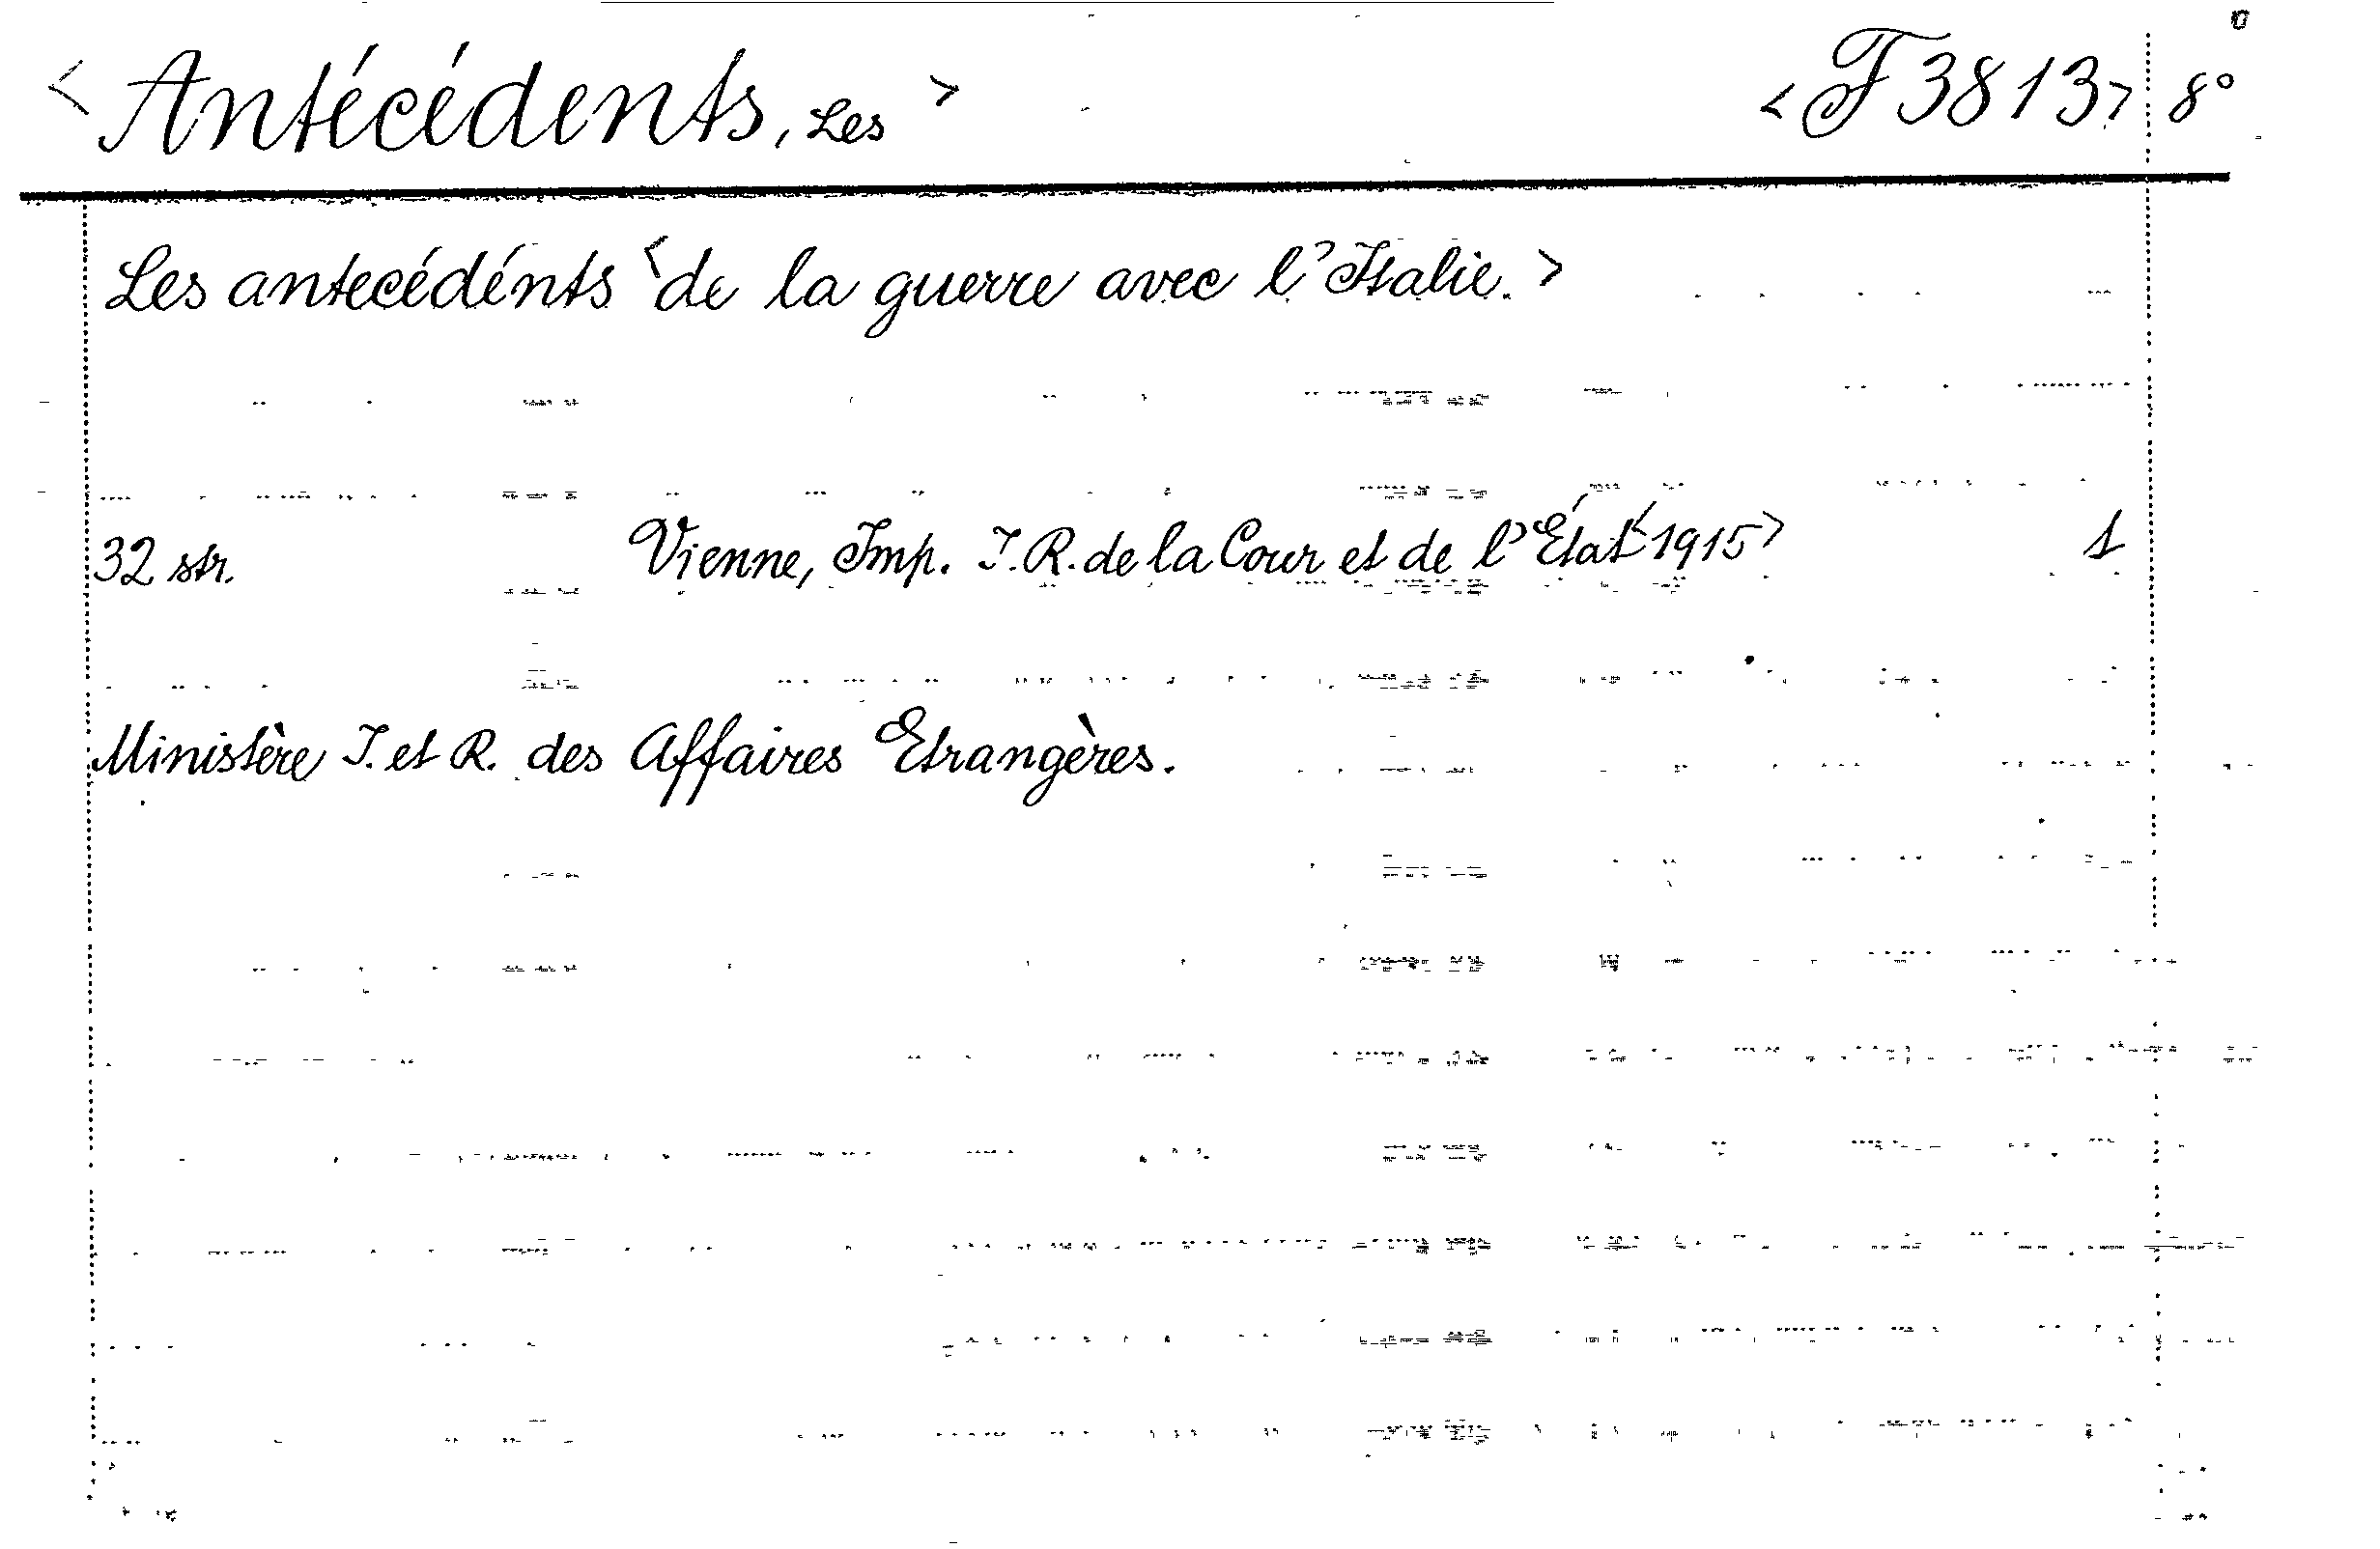 < Antécédents, Les > < F 3813 > 8°
Les antecédénts < de la guerre avec l'Italie. >
32 str. Vienne, Imp. I. R. de la Cour et de l'État < 1915 > 1
Ministère I. et R. des Affaires Etrangères.